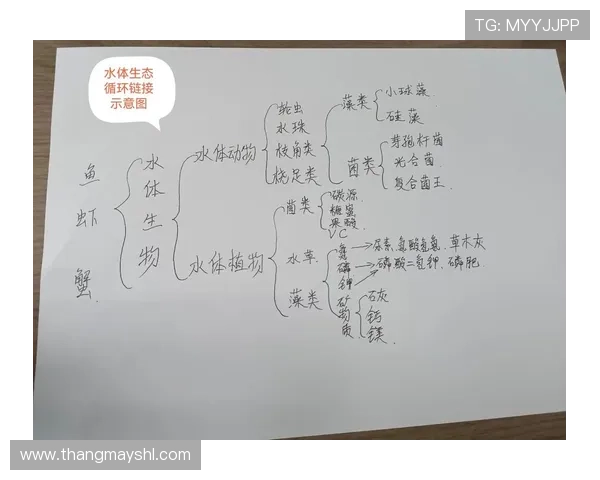 TG: MYYJJPP
水体生态
循环链接
示意图
鱼
虾
蟹.
水体生物
水体动物
轮虫
水珠
枝角类
桡足类
藻类
小球藻
硅藻
菌类
芽孢杆菌
光合菌
复合菌王.
水体植物
菌类
碳源
糖蜜
果酸
VC
水草.
藻类
氮
磷
钾
尿素.氨酸氮氨.草木灰
磷酸二氢钾.磷肥.
矿物质
石灰
钙
镁.
www.thangmayshl.com